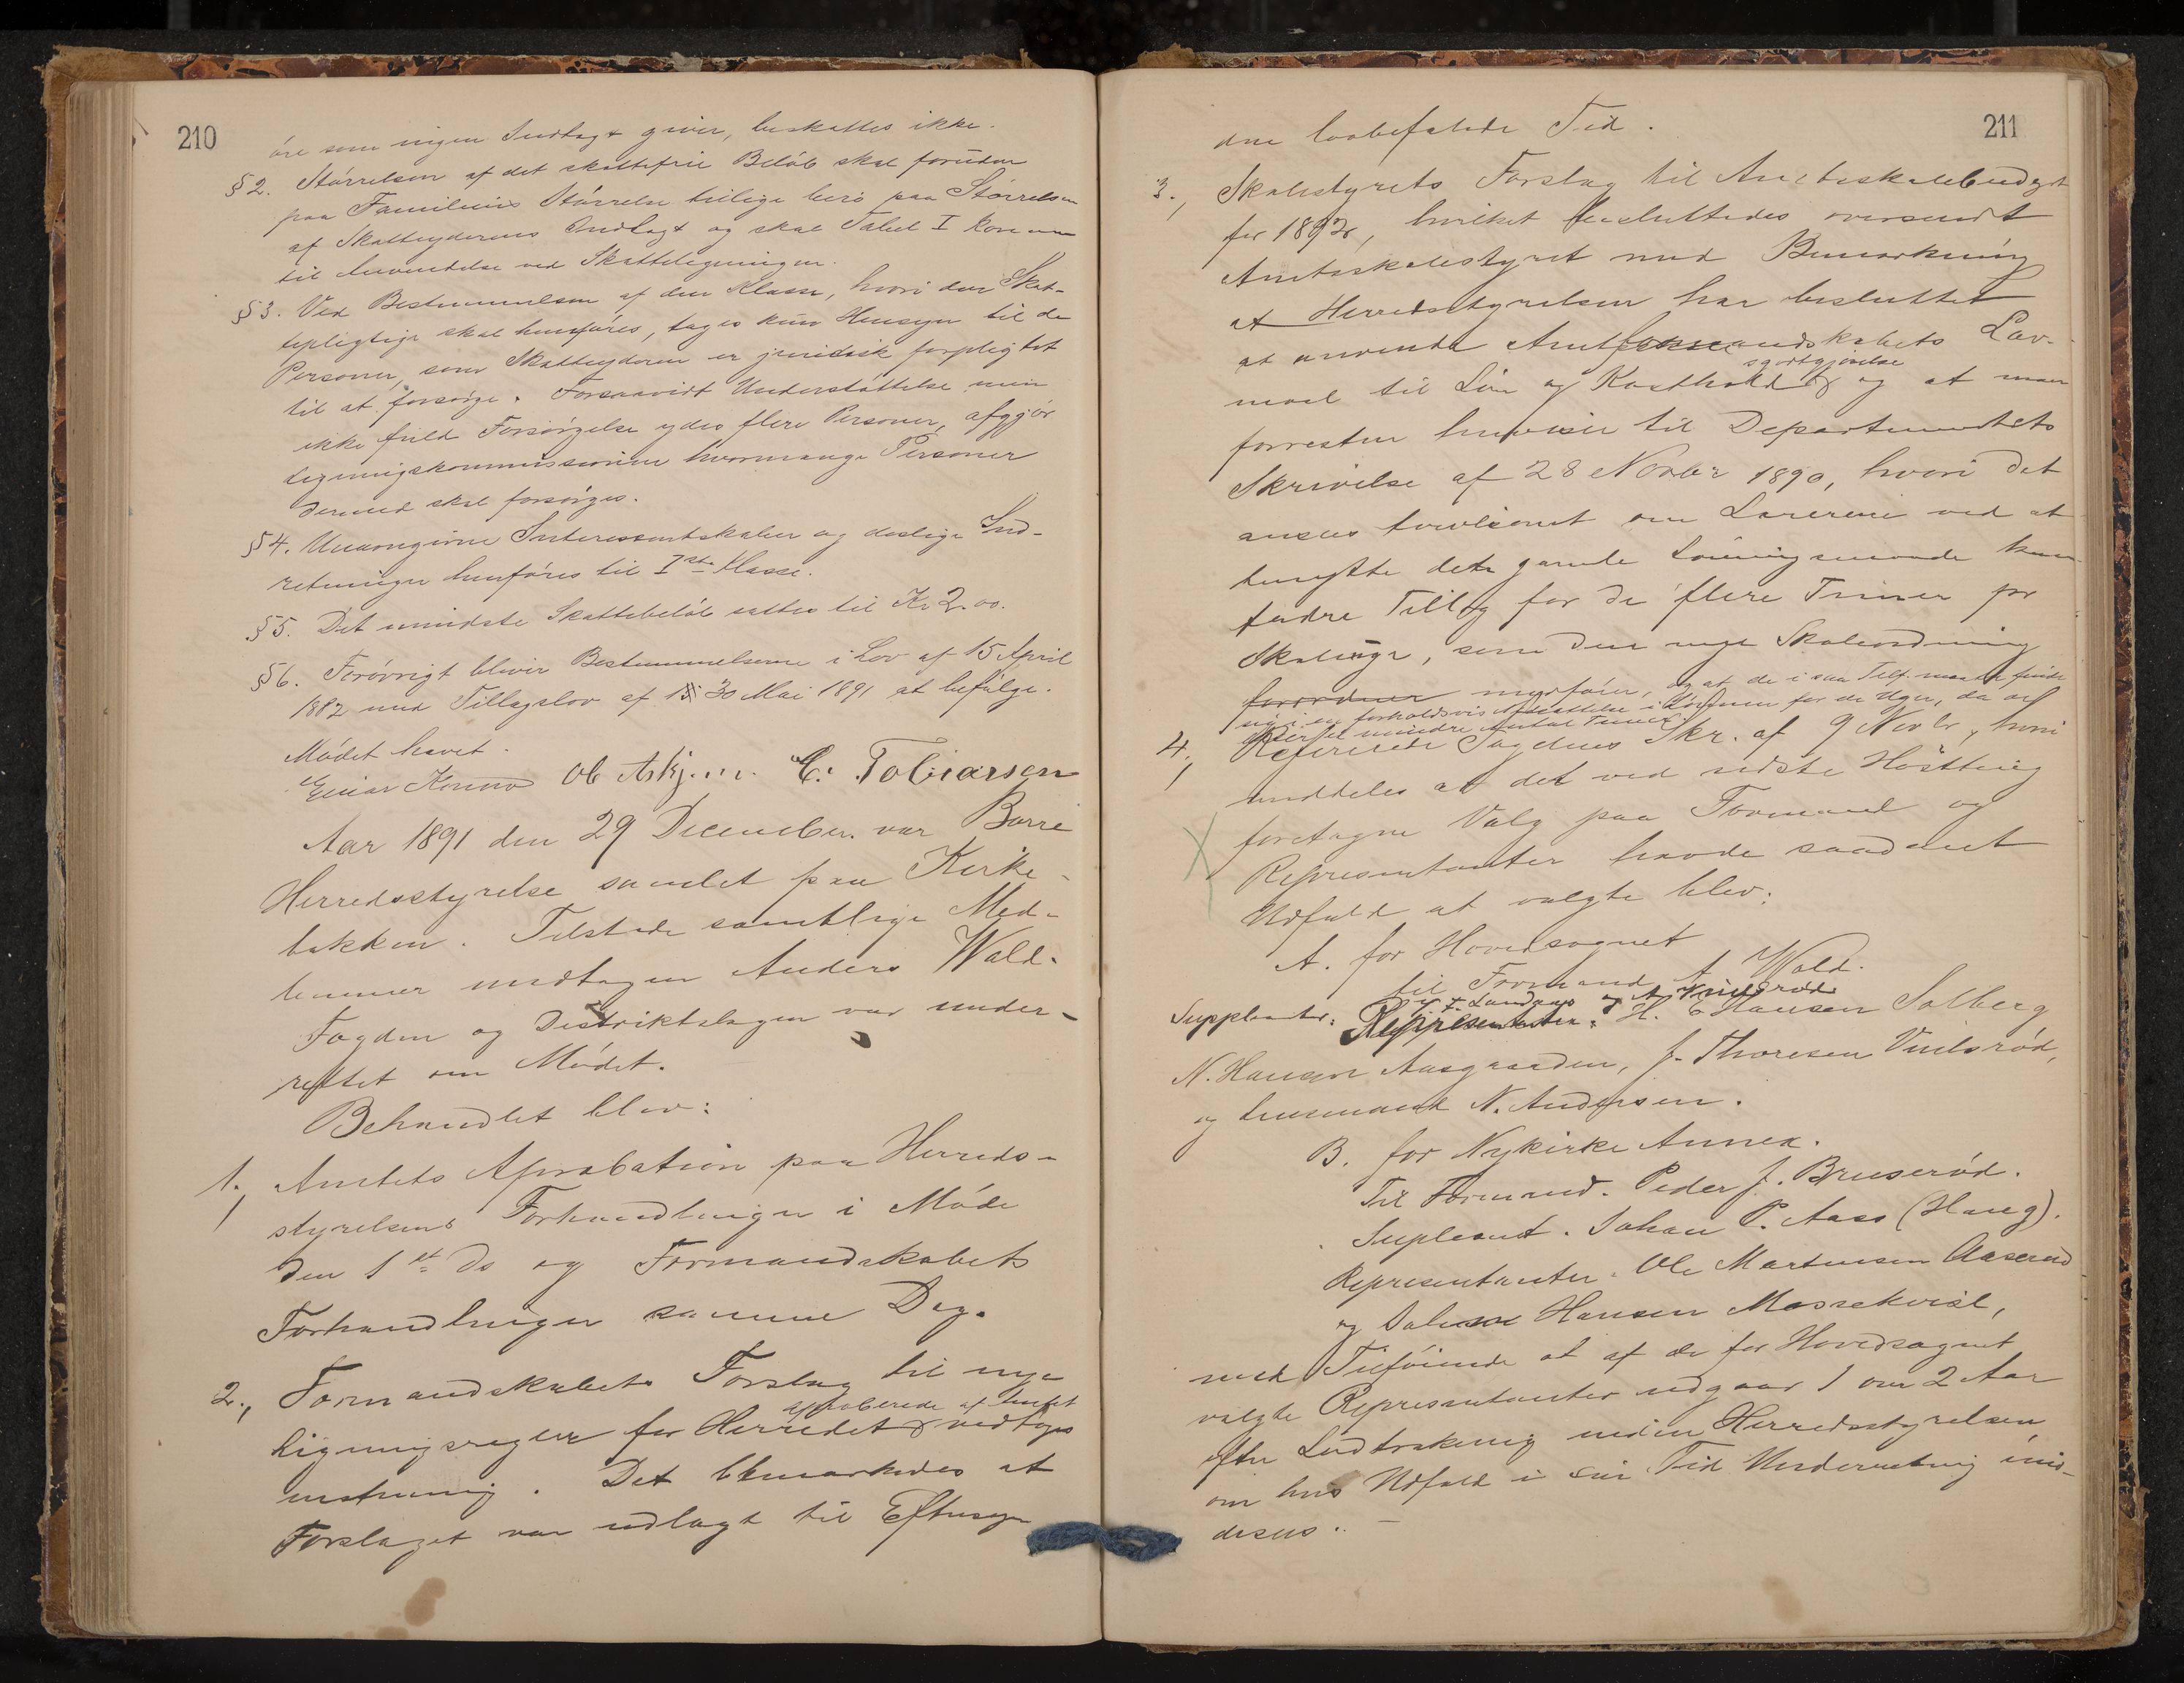 210
øre som ingen Indtægt giver, beskattes ikke.
§ 2. Størrelsen af det skattefrie Beløb skal foruden
paa Familiens Størrelse tillige bero paa Størrelsen
af Skatteyderens Indtægt og skal Tabel I komme
til Anvendelse ved Skatteligningen.
§ 3. Ved Bestemmelsen af den Klasse, hvori den Skat-
tepligtige skal henføres, tages kun Hensyn til de
Personer, som Skatteyderen er juridisk forpligtet
til at forsørge. Forsaavidt Understøttelse, men
ikke fuld Forsørgelse ydes flere Personer, afgjør
Ligningskommissionen hvormange Personer
dermed skal forsørges.
§ 4. Unavngivne Interessentskaber og deslige Ind-
retninger henføres til Iste Klasse.
§ 5. Det mindste Skattebeløb sættes til Kr 2.00.
§ 6. Forøvrigt bliver Bestemmelserne i Lov af 15 April
1882 med Tillægslov af 30 Mai 1891 at befølge.
Mødet hævet.
Einar Ol Askj... C. Tobiassen
Aar 1891 den 29 December var Borre
Herredsstyrelse samlet paa Kirke-
bakken. Tilstede samtlige Med-
lemmer undtagen Anders Wold.
Fogden og Distriktslægen var under-
rettet om Mødet.
Behandlet blev:
1., Amtets Aprobation paa Herreds-
styrelsens Forhandlinger i Møde
den 1ste Ds og Formandskabets
Forhandlinger samme Dag.
2., Formandskabets Forslag til nye
approberede af Amtet
Ligningsregler for Herredet vedtoges
enstemmig. Det bemærkedes at
Forslaget var udlagt til Eftersyn
211
den lovbefalede Tid.
3., Skolestyrets Forslag til Amtsskolebudget
for 1892, hvilket besluttedes oversendt
Amtsskolestyret med Bemærkning
at Herredsstyrelsen har besluttet
at anvende Amtformandskabets Lav-
sgodtgjørelse
maal til Løn og Kosthold og at man
forresten henviser til Departementets
Skrivelse af 28 Novbr 1890, hvori det
ansees tvivlsomt om Lærerne ved at
benytte det gamle Lønningsmaade kan
fordre Tillæg for de flere Timer pr
Skoleuge, som den nye Skoleordning
forordner medfører, og at de i saa Tilf. maa finde
sig i en forholdsvis Nedsættelse i Lønnen for de Uger, da de
læser et mindre Antal Timer.
4., Refereredes Fogdens Skr. af 9 Novbr, hvori
meddeles at det ved sidste Høstting
foretagne Valg paa Formand og
Representanter havde saadant
Udfald at valgte blev:
A. for Hovedsognet
til Formand A Wold.
Suppleanter: Representanter: H. E Hansen Solberg
N. Hansen Aasgaarden, J. Thoresen Viulsrød,
og Lensmand N. Andersen.
B. for Nykirke Annex.
Til Formand. Peder J. Bruserød.
Supleant. Johan P. Aass (Haug).
Representanter. Ole Martinsen Aaserud
og Hansen
med Tilføiende at af de for Hovedsognet
valgte Representanter udgaar 1 om 2 Aar
efter Lodtrækning inden Herredsstyrelsen,
om hvis Udfald i sin Tid Underretning ind-
sees. –